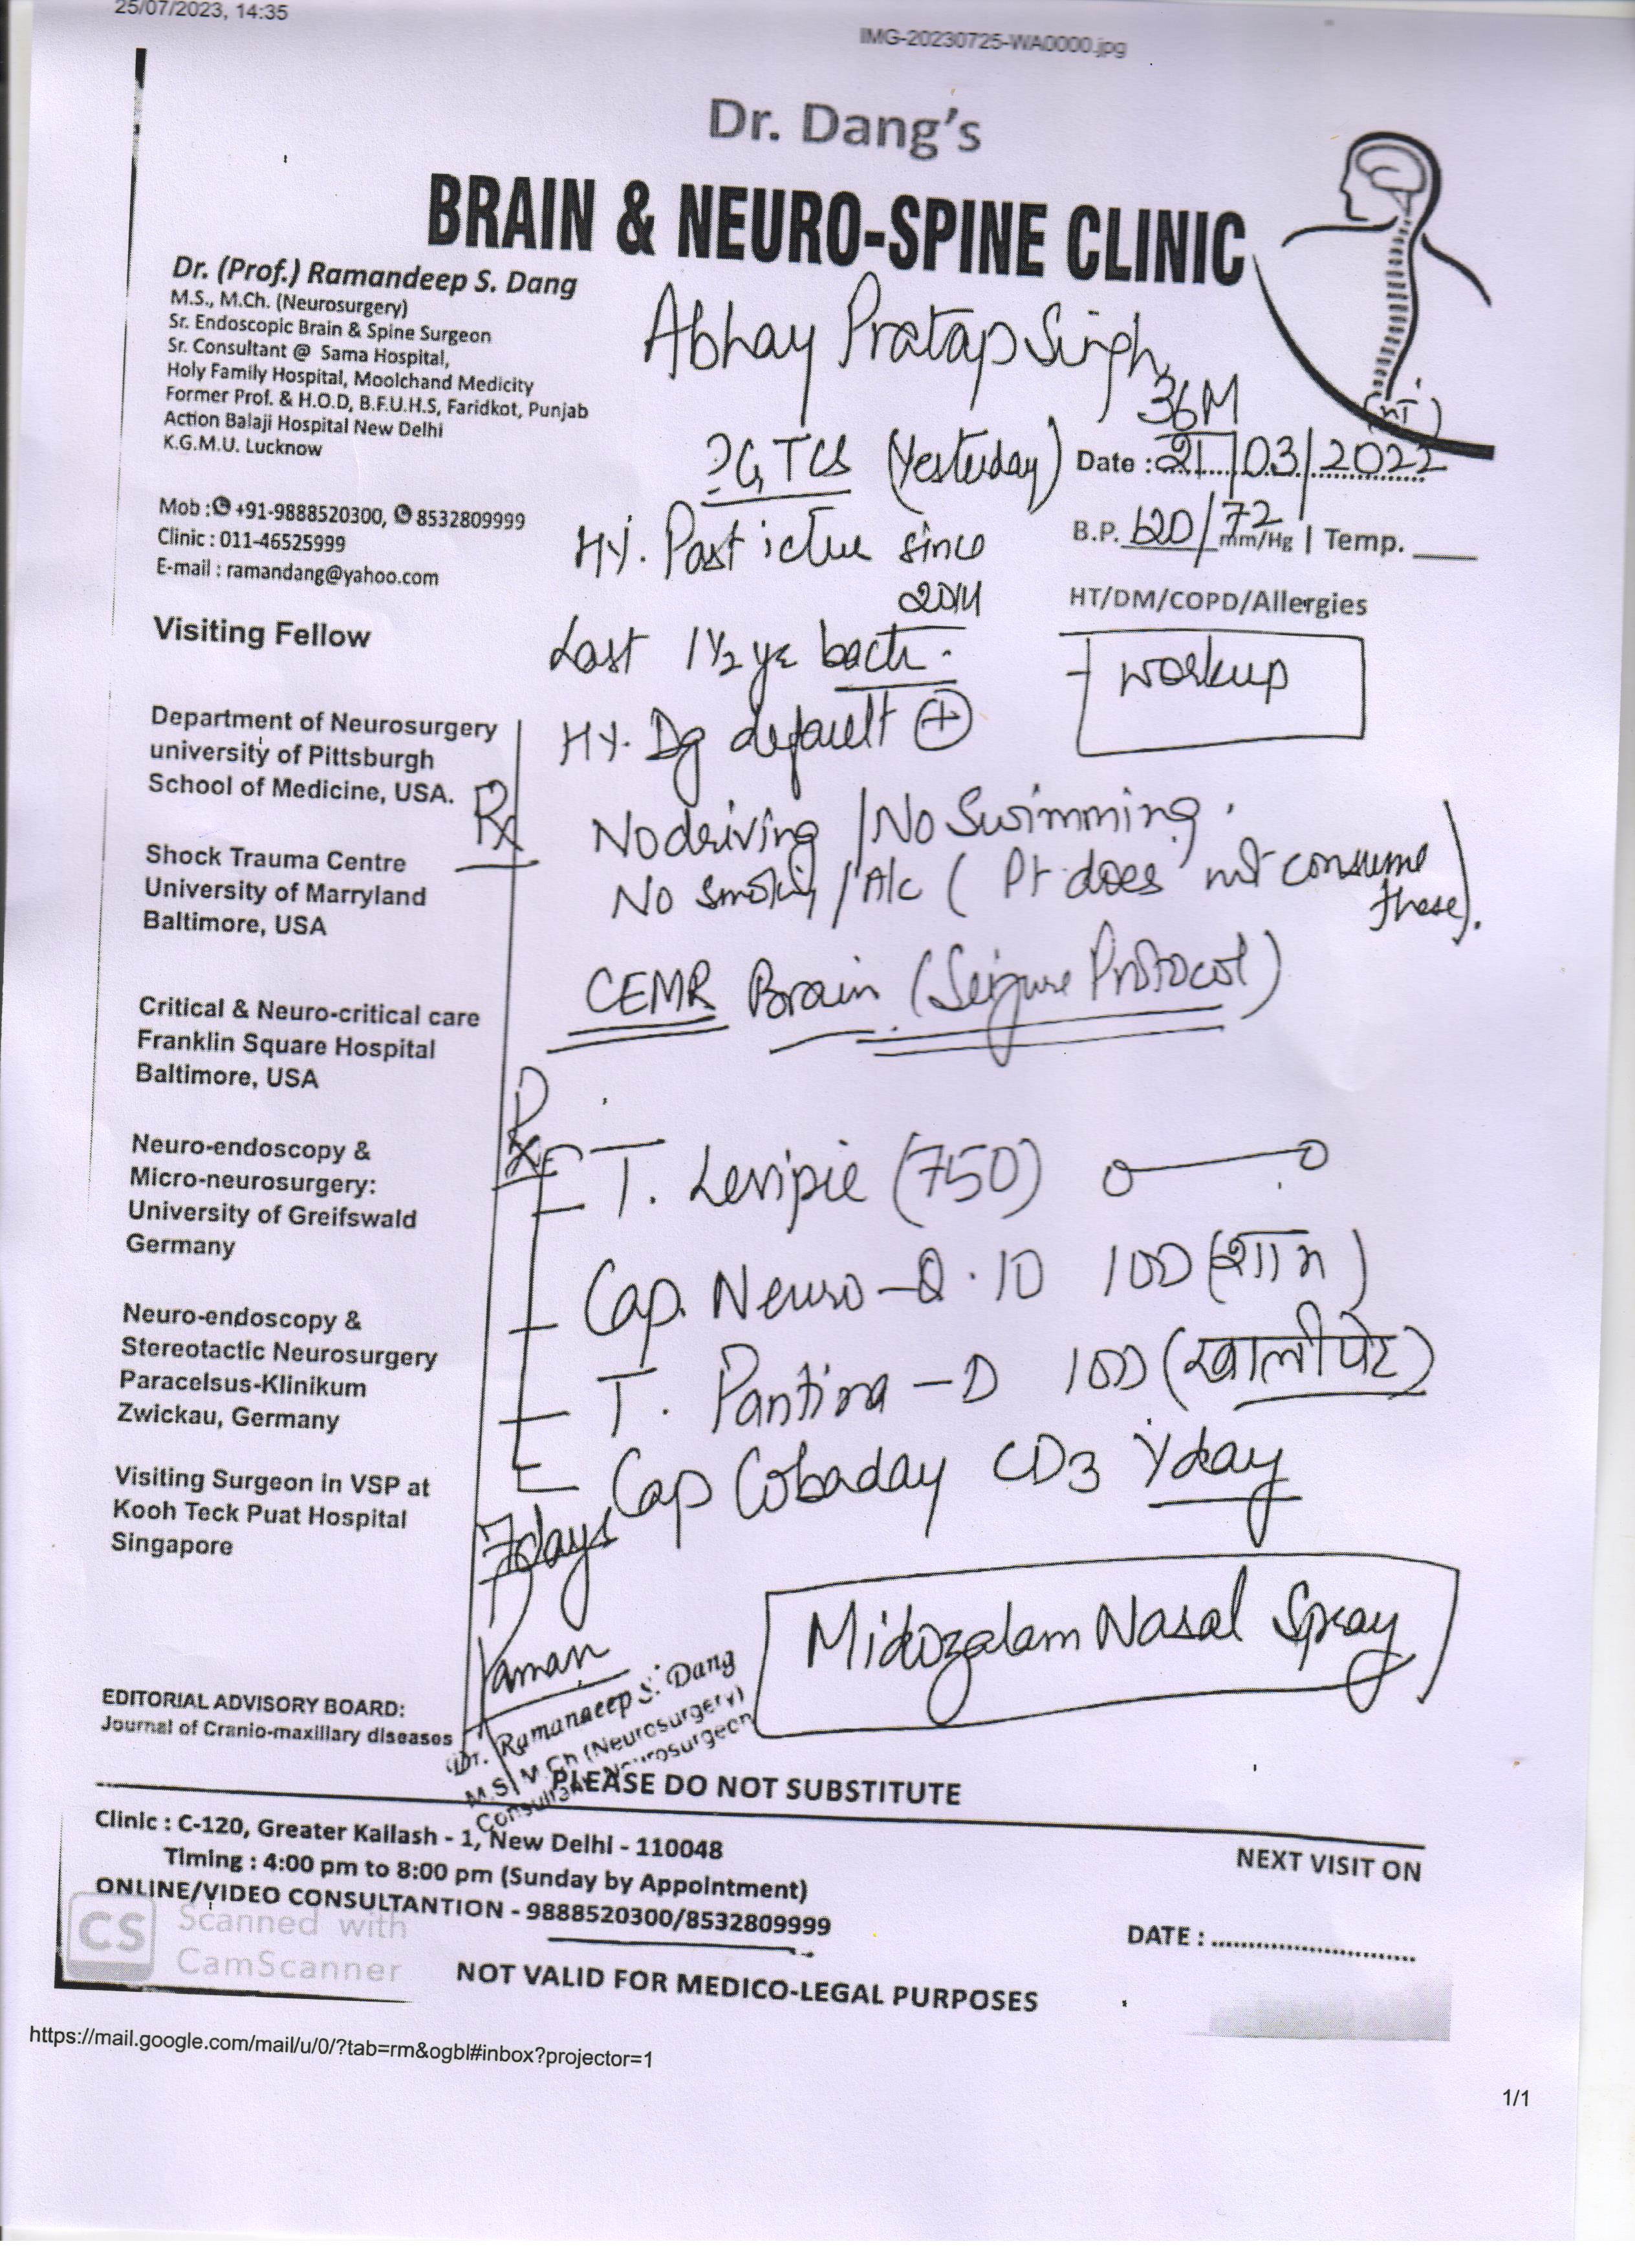 25/07/2023, 14:35
IMG-20230725-WA0000.jpg
Dr. Dang's
BRAIN & NEURO-SPINE CLINIC
Dr. (Prof.) Ramandeep S. Dang
M.S., M.Ch. (Neurosurgery)
Sr. Endoscopic Brain & Spine Surgeon
Sr. Consultant @ Sama Hospital,
Holy Family Hospital, Moolchand Medicity
Former Prof. & H.O.D, B.F.U.H.S, Faridkot, Punjab
Action Balaji Hospital New Delhi
K.G.M.U. Lucknow
Mob : +91-9888520300, 8532809999
Clinic : 011-46525999
E-mail : ramandang@yahoo.com
Abhay Pratap Singh
36M
Date : 21/03/2022
B.P. 120/72 mm/Hg | Temp.
HT/DM/COPD/Allergies
workup
?GTCS (Yesterday)
H/. Past ictue since
2014
Last 1½ ye back.
H/. Dg default +
Visiting Fellow
Department of Neurosurgery
university of Pittsburgh
School of Medicine, USA.
Shock Trauma Centre
University of Marryland
Baltimore, USA
Critical & Neuro-critical care
Franklin Square Hospital
Baltimore, USA
Neuro-endoscopy &
Micro-neurosurgery:
University of Greifswald
Germany
Neuro-endoscopy &
Stereotactic Neurosurgery
Paracelsus-Klinikum
Zwickau, Germany
Visiting Surgeon in VSP at
Kooh Teck Puat Hospital
Singapore
EDITORIAL ADVISORY BOARD:
Journal of Cranio-maxillary diseases
Rx
No driving / No Swimming.
No smoking / Alc ( Pt does not consume
these).
CEMR Brain (Seizure Protocol)
Rx
T. Levipil (750) o—o
Cap. Neuro-Q.10 1OD (शाम)
T. Pantina-D 1OD (खाली पेट)
Cap Cobaday CD3 Yday
7days
Raman
Midozalam Nasal Spray
Dr. Ramandeep S. Dang
M.S., M.Ch (Neurosurgery)
Consultant Neurosurgeon
PLEASE DO NOT SUBSTITUTE
Clinic : C-120, Greater Kailash - 1, New Delhi - 110048
Timing : 4:00 pm to 8:00 pm (Sunday by Appointment)
ONLINE/VIDEO CONSULTANTION - 9888520300/8532809999
NEXT VISIT ON
DATE : ..........................
CS Scanned with
CamScanner
NOT VALID FOR MEDICO-LEGAL PURPOSES
https://mail.google.com/mail/u/0/?tab=rm&ogbl#inbox?projector=1
1/1